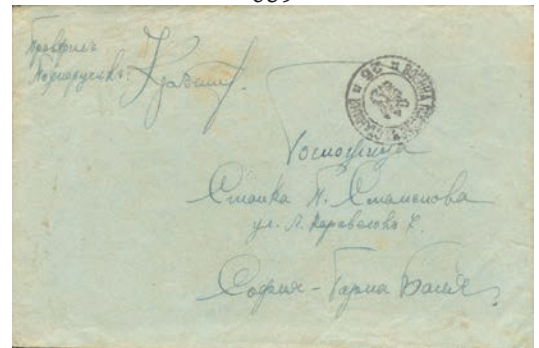 Проверилъ
Подпоручикъ:
ВОЕННА ПОЩЕНСКА СТАНЦИЯ 36
Госпожица
Станка П. Стаменова
ул. Л. Каравеловъ 7.
София - Горна Баня